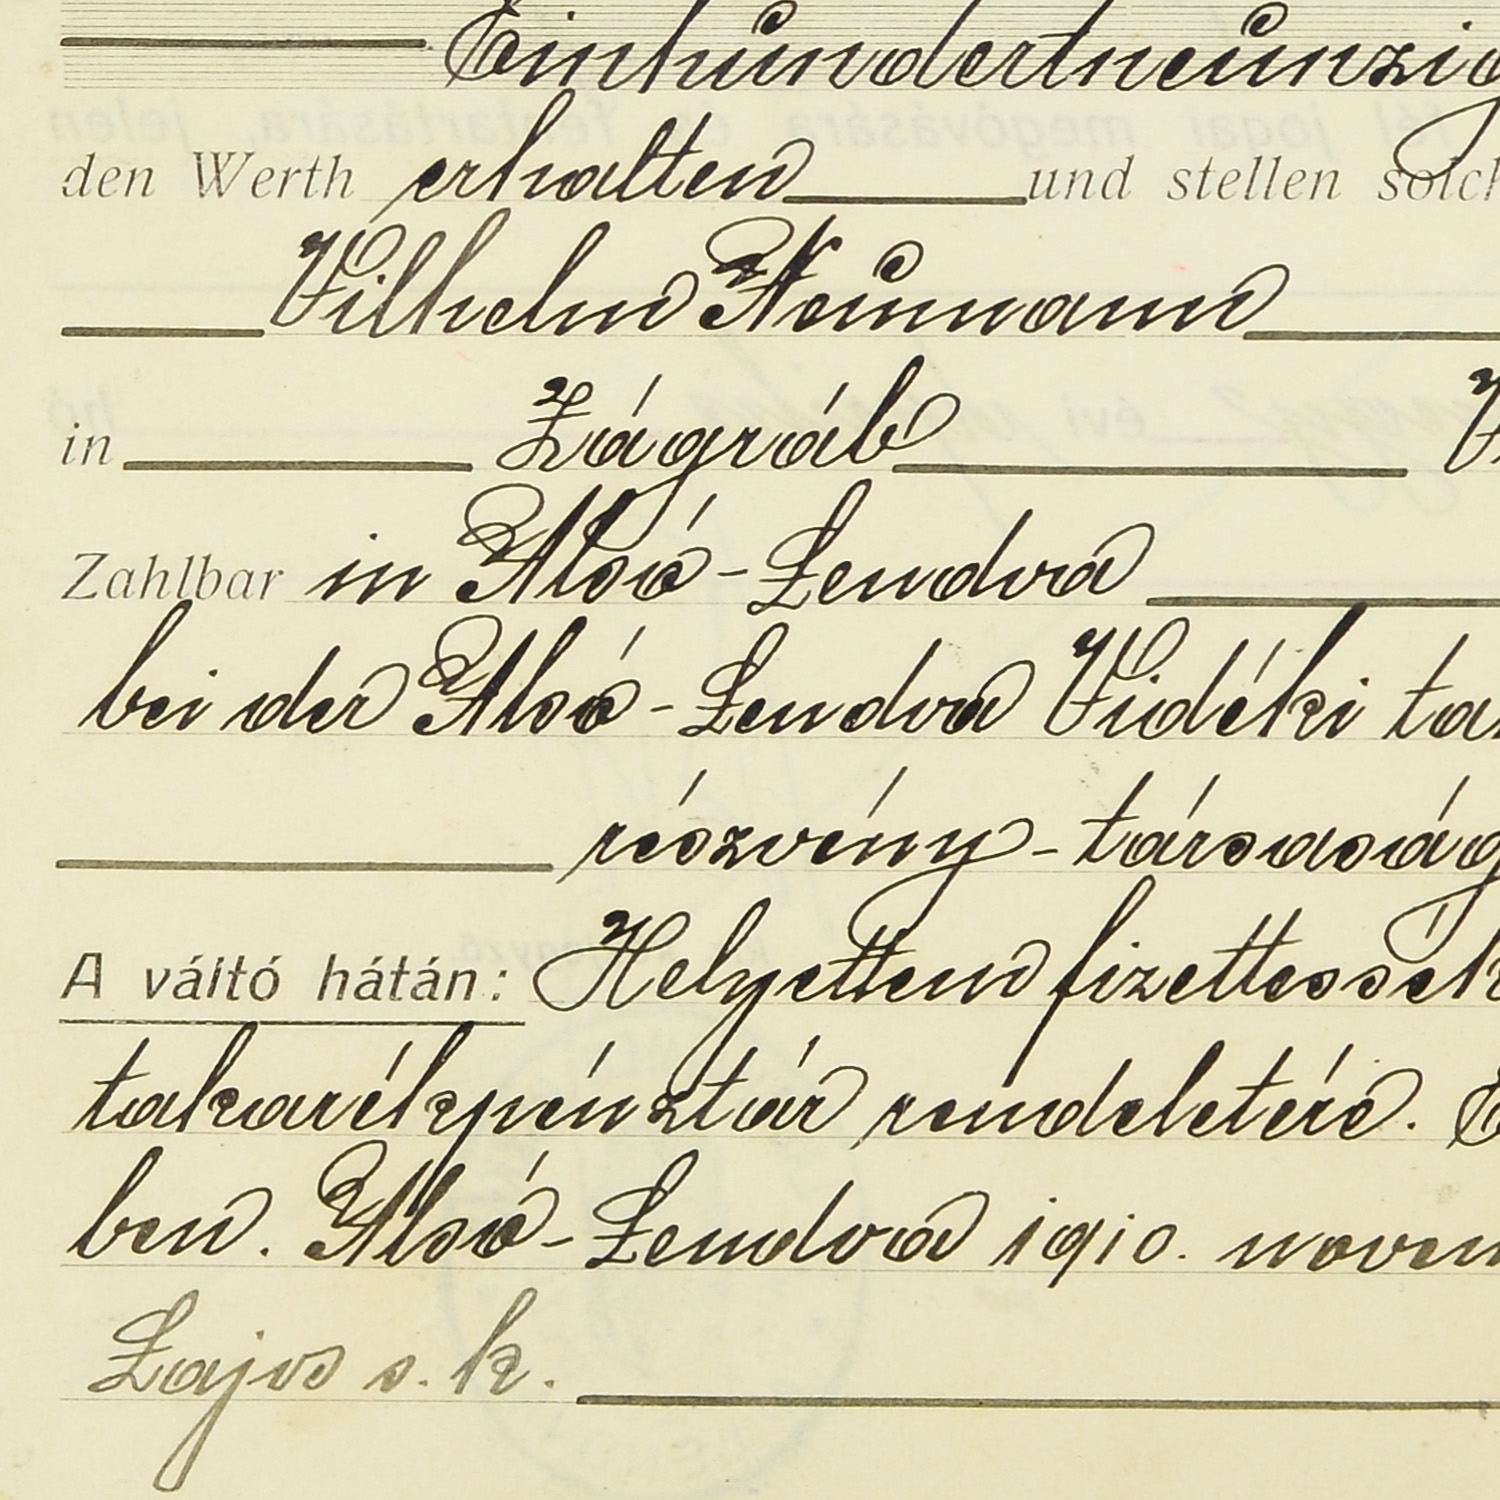 Einhundertneunzig
den Werth erhalten und stellen solch
Vilhelm Neumann
in Zágráb
Zahlbar in Alsó-Lendva
bei der Alsó-Lendva Vidéki ta
részvény-társaság
A váltó hátán: Helyettem fizettessék
takarékpénztár rendeletére. É
ben. Alsó-Lendva 1910. novem
Lajos s. k.